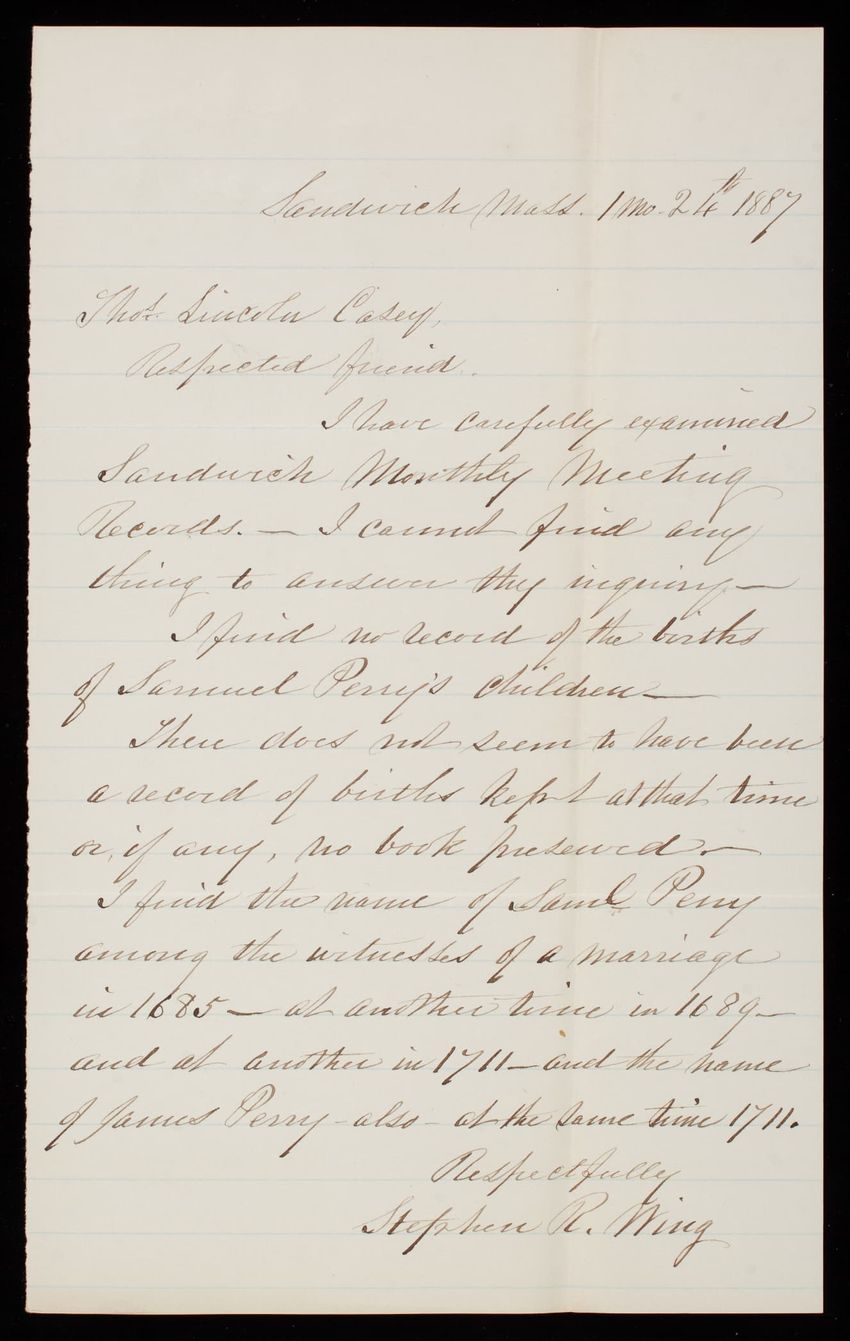 Sandwich Mass. 1 Mo. 24th 1887
Thos. Lincoln Casey,
Respected friend.
I have carefully examined
Sandwich Monthly Meeting
Records. — I cannot find any
thing to answer thy inquiry —
I find no record of the births
of Samuel Perry's children —
There does not seem to have been
a record of births kept at that time
or, if any, no book preserved. —
I find the name of Saml Perry
among the witnesses of a marriage
in 1685 — at another time in 1689 —
and at another in 1711 — and the name
of James Perry - also - at the same time 1711.
Respectfully
Stephen R. Wing